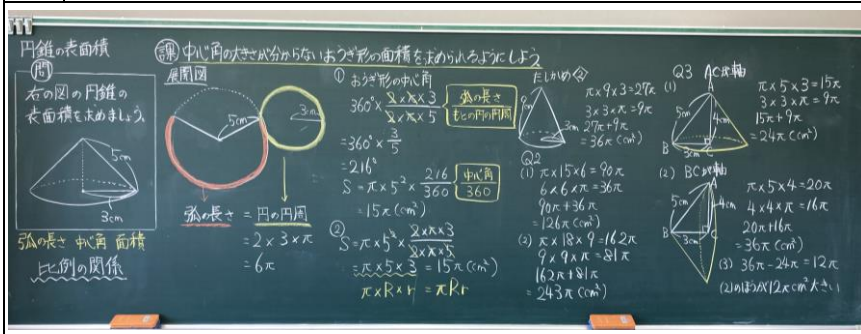 円錐の表面積
問
右の図の円錐の
表面積を求めましょう。
5cm
3cm
弧の長さ 中心角 面積
比例の関係
課 中心角の大きさが分からないおうぎ形の面積を求められるようにしよう
展開図
5cm
3cm
弧の長さ = 円の円周
= 2×3×π
= 6π
① おうぎ形の中心角
360°× 2×π×3 / 2×π×5 弧の長さ / もとの円の円周
=360°× 3/5
=216°
S = π×5²× 216/360 中心角/360
=15π(cm²)
②
S=π×5²× 2×π×3 / 2×π×5
=π×5×3 = 15π(cm²)
π×R×r = πRr
たしかめ②
9cm
3cm
π×9×3=27π
3×3×π=9π
27π+9π
=36π(cm²)
Q2
(1) π×15×6=90π
6×6×π=36π
90π+36π
=126π(cm²)
(2) π×18×9=162π
9×9×π=81π
162π+81π
=243π(cm²)
Q3
(1)
ACが軸
A
5cm
4cm
B
3cm
C
π×5×3=15π
3×3×π=9π
15π+9π
=24π(cm²)
(2) BCが軸
A
5cm
4cm
B
3cm
C
π×5×4=20π
4×4×π=16π
20π+16π
=36π(cm²)
(3) 36π-24π=12π
(2)のほうが12πcm²大きい